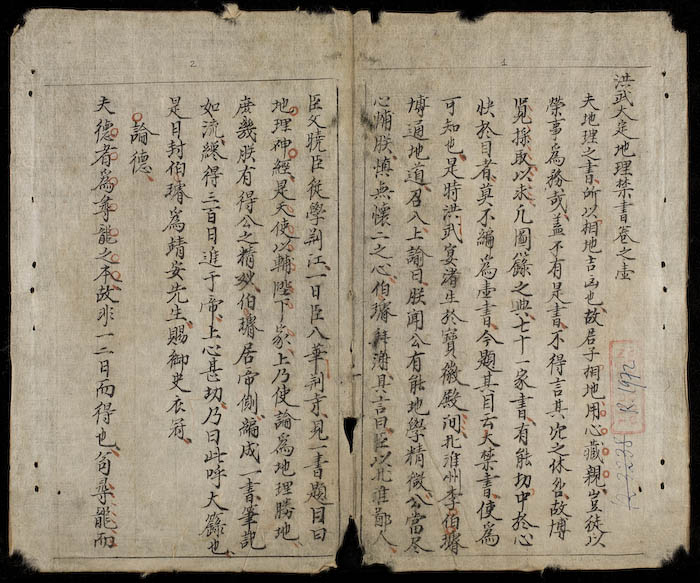 洪武大定地理禁書卷之壹
夫地理之書所以相地吉凶也故君子相地用心藏親豈徒以
榮事為務哉蓋不有是書不得言其穴之休咎故博
覽採取以求凡圖籙之典七十一家書有能切中於心
快於目者莫不編為壹書今題其目云大禁書使為
可知也是時洪武宴潜生於寶徽殿间北淮州李伯璿
博通地道召入上諭曰朕聞公有能地學精微公當尽
心輔朕慎無懷二之心伯璿拜謝其言曰臣以北淮鄙人
臣父曉臣従學荆江一日臣入華荆京見一書題目曰
地理神經是天使以輔陛下家上乃使論為地理勝地
庶幾朕有得公之精妙伯璿居帝側編成一書筆記
如流總得三百日進于帝上心甚切乃曰此呼大籙也
是日封伯璿為靖安先生賜御史衣符
論德
夫德者為尋龍之本故非一二日而得也苟尋龍而
1
2
R.1992